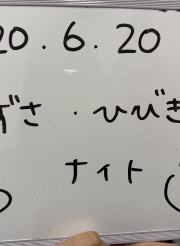 20.6.20
ずさ・ひびき
ナイト